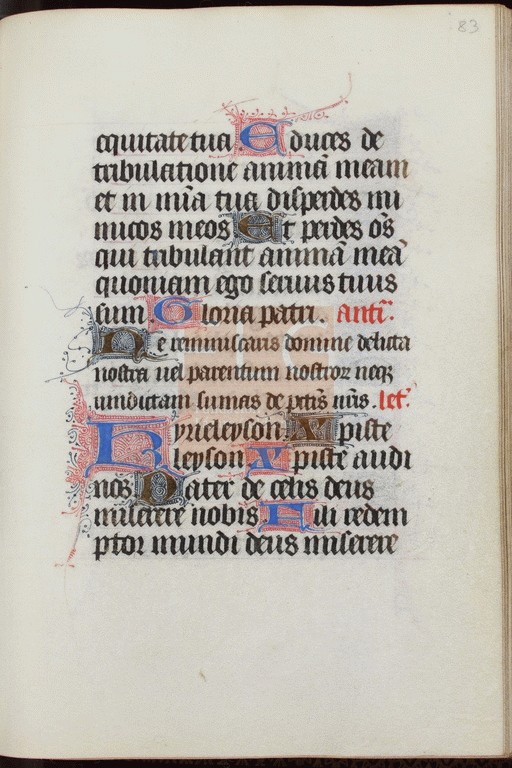 83
equitate tua Educes de
tribulatione animã meam
et in mĩa tua disperdes ini
micos meos Et perdes õs
qui tribulant animã meã
quoniam ego seruus tuus
sum Gloria patri. Antĩ.
Ne reminiscaris domine delicta
nostra uel parentum nostrorz neqz
uindictam sumas de pctĩs nr̃is. let̃.
Kyrieleyson. Xpiste
eleyson Xpiste audi
nos Pater de celis deus
miserere nobis Fili redem
ptor mundi deus miserere